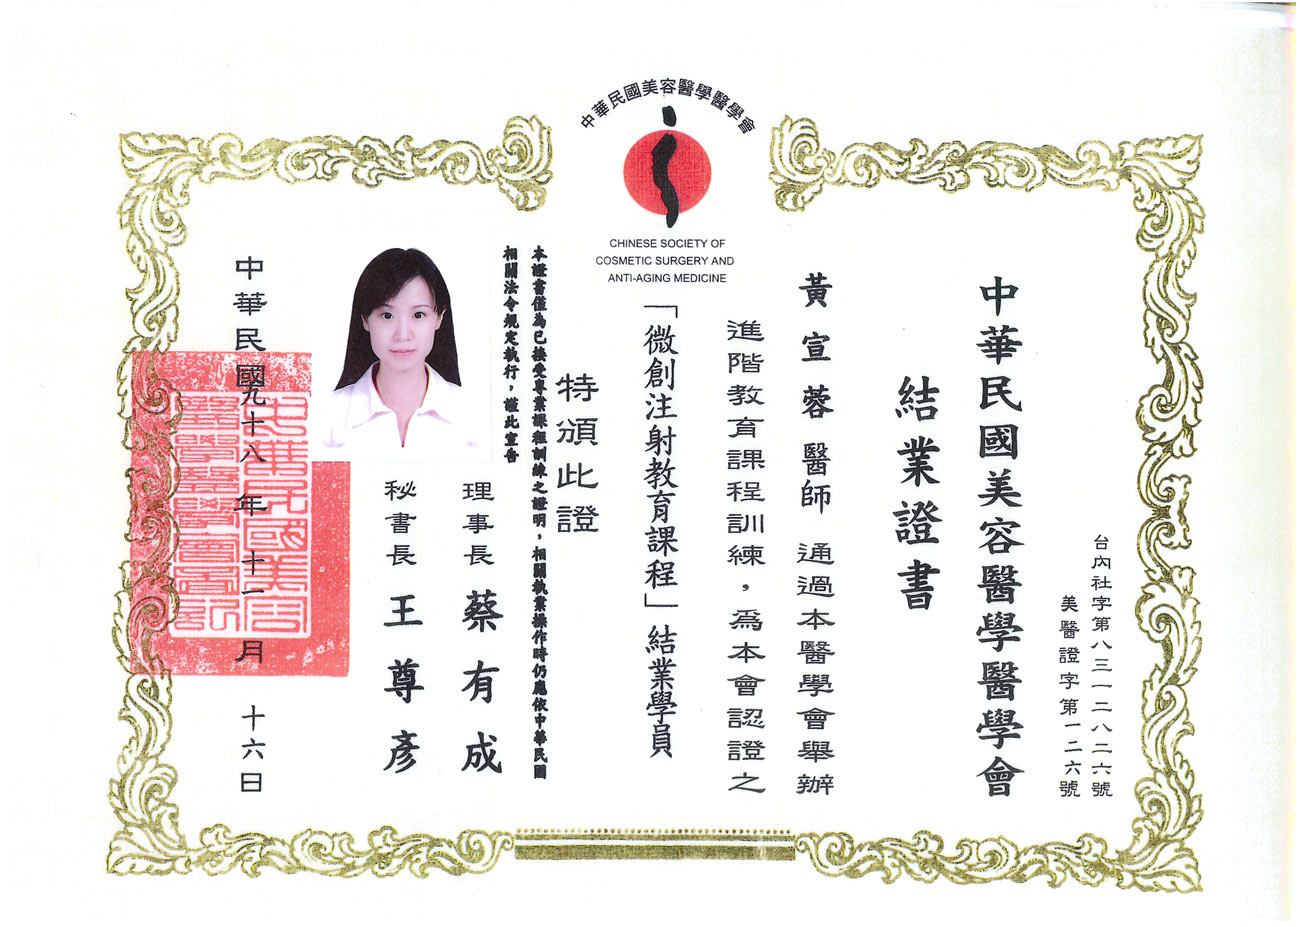 中華民國美容醫學醫學會
CHINESE SOCIETY OF
COSMETIC SURGERY AND
ANTI-AGING MEDICINE
台內社字第八三一二八二六號
美醫證字第一二六號
中華民國美容醫學醫學會
結業證書
黃宣蓉 醫師 通過本醫學會舉辦
進階教育課程訓練，為本會認證之
「微創注射教育課程」結業學員
特頒此證
本證書僅為已接受專業課程訓練之證明，相關執業操作時仍應依中華民國
相關法令規定執行，謹此宣告
理事長 蔡有成
秘書長 王尊彥
中華民國九十八年十一月十六日